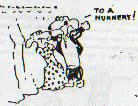 TO A
NUNNERY!